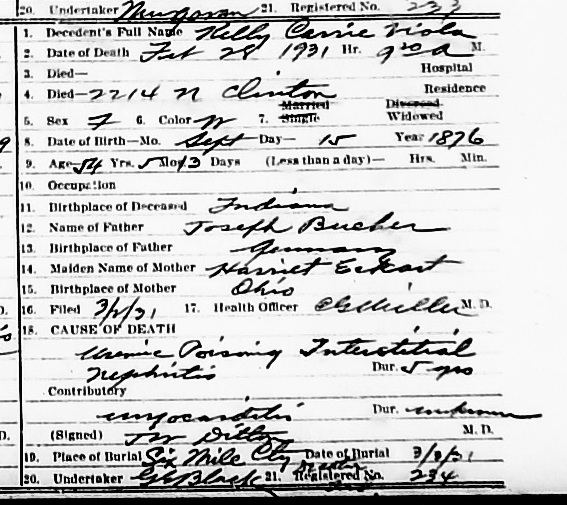 20. Undertaker 21. Registered No. 233
1. Decedent's Full Name Kelly Carrie Viola
2. Date of Death Feb 28 1931 Hr. 9 30 A M.
3. Died— Hospital
4. Died— 2214 N Clinton Residence
5. Sex F 6. Color W 7. Married Single Divorced Widowed
8. Date of Birth—Mo. Sept Day— 15 Year 1876
9. Age 54 Yrs. 5 Mos 13 Days (Less than a day)— Hrs. Min.
10. Occupation
11. Birthplace of Deceased Indiana
12. Name of Father Joseph Bueher
13. Birthplace of Father Germany
14. Maiden Name of Mother Harriet Eckart
15. Birthplace of Mother Ohio
16. Filed 3/2/31 17. Health Officer Miller M. D.
18. CAUSE OF DEATH
Uremic Poisoning Interstitial
Nephritis Dur. 5 yrs
Contributory
myocarditis Dur. unknown
(Signed) M. D.
19. Place of Burial Six Mile Cty Date of Burial 3/3/31
20. Undertaker Black 21. Registered No. 234